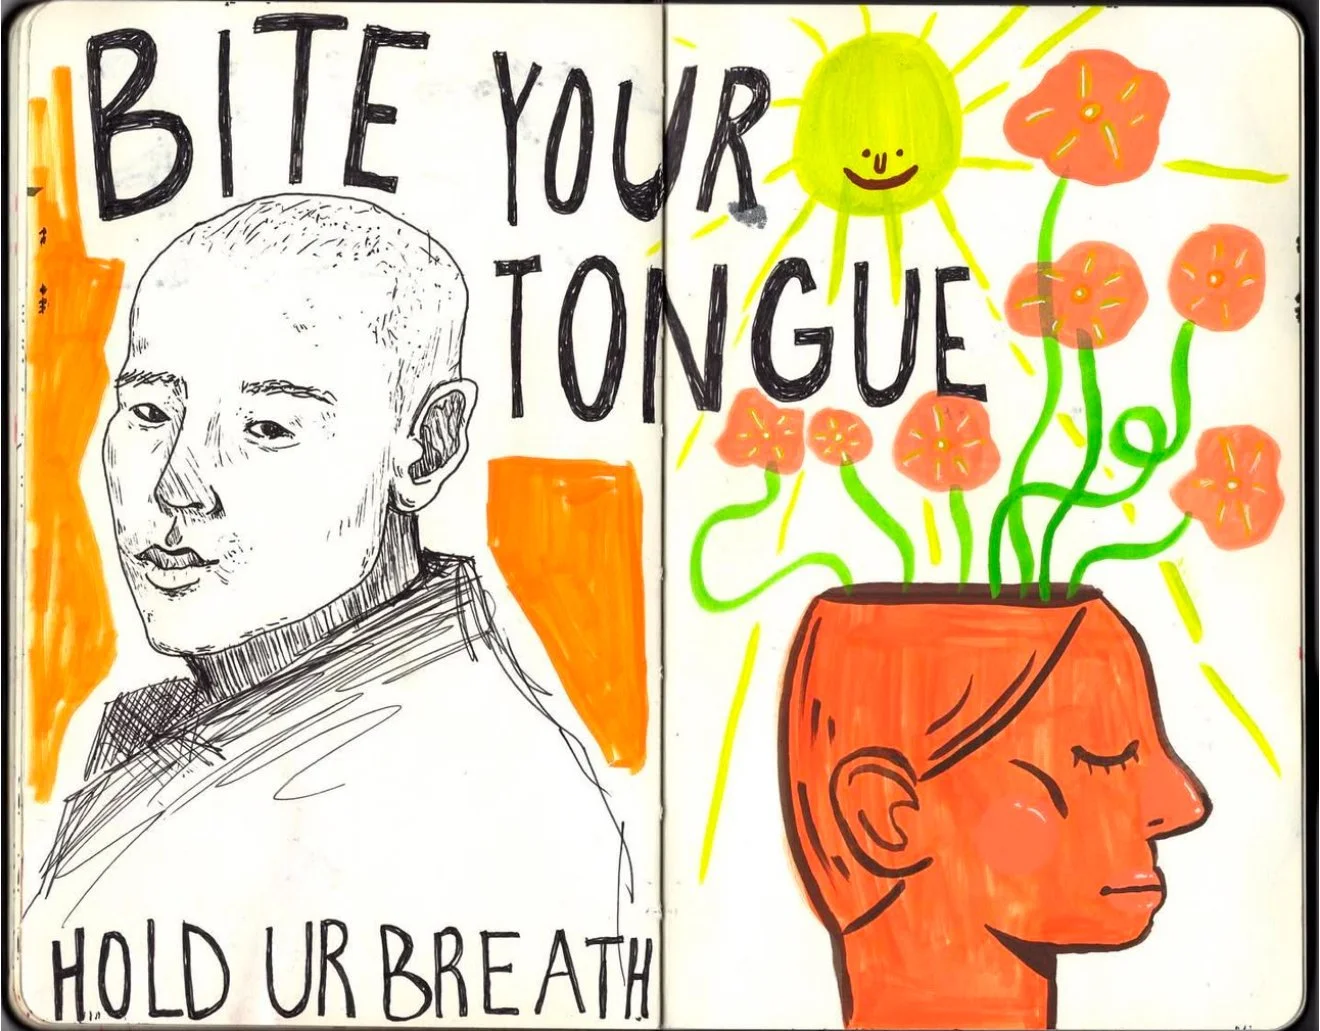 BITE YOUR
TONGUE
HOLD UR BREATH